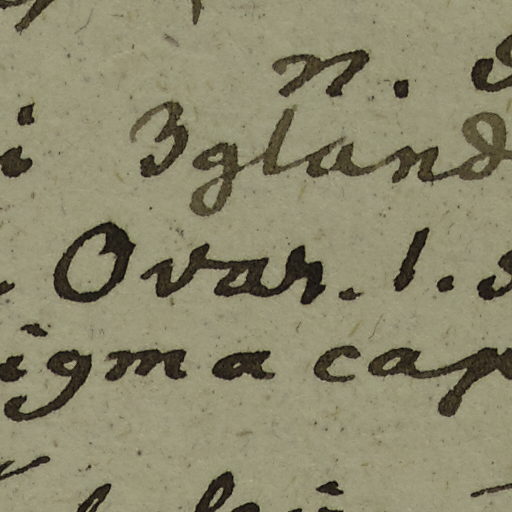 n.
i 3gland
Ovar. 1. s
igma cap